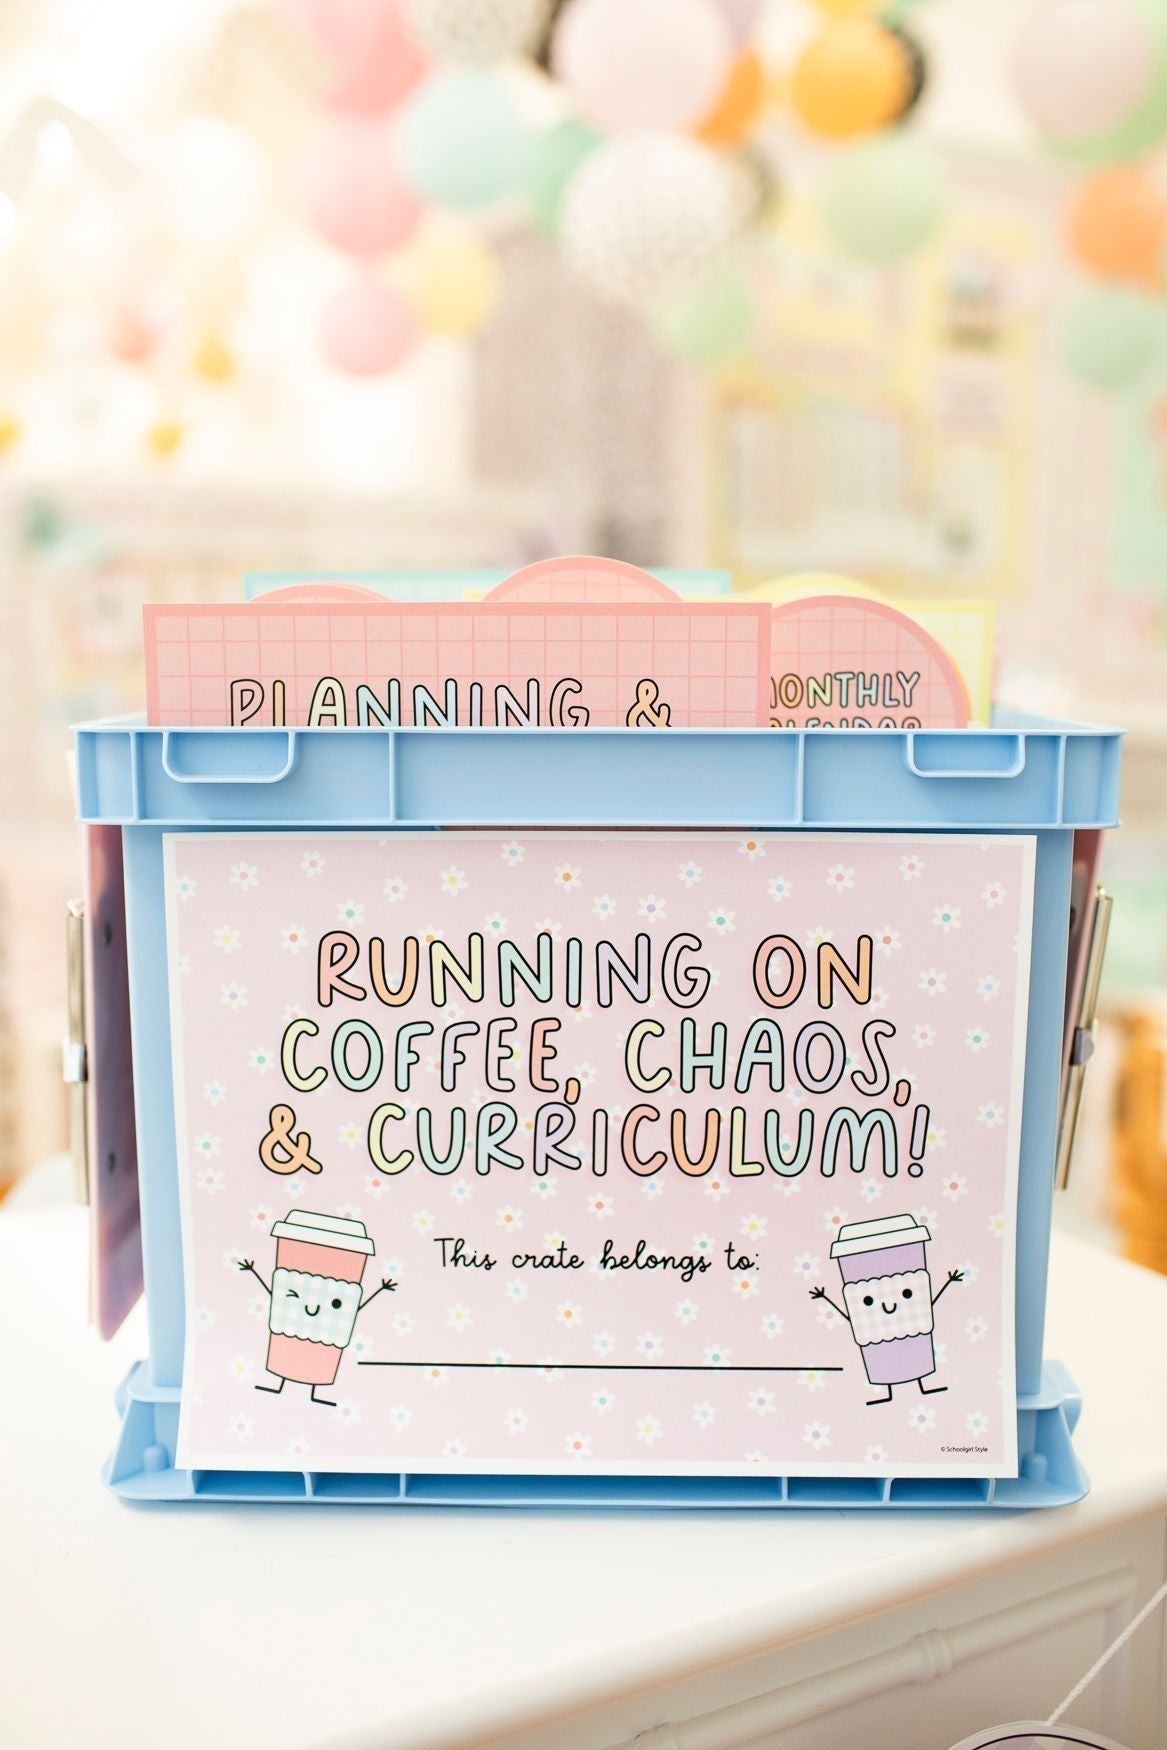 PLANNING &
MONTHLY
CALENDAR
RUNNING ON
COFFEE, CHAOS,
& CURRICULUM!
This crate belongs to:
© Schoolgirl Style